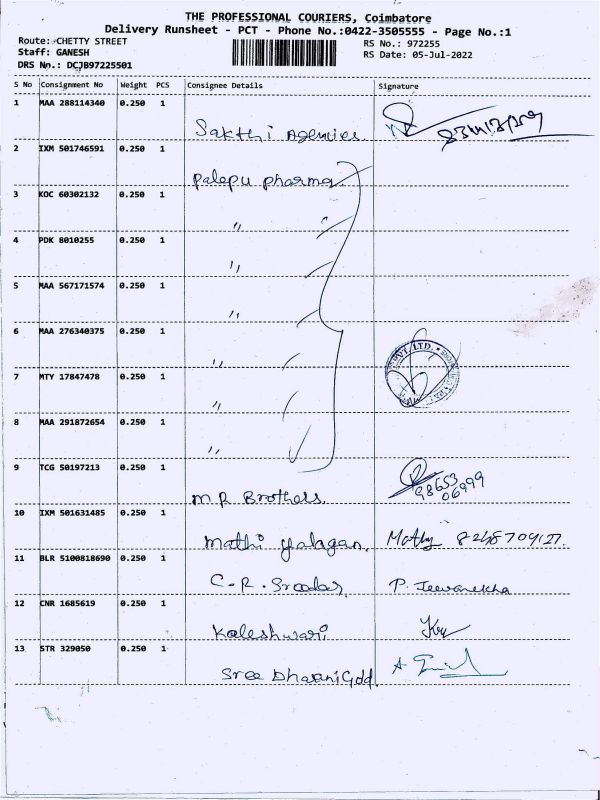 THE PROFESSIONAL COURIERS, Coimbatore
Delivery Runsheet - PCT - Phone No.:0422-3505555 - Page No.:1
Route: CHETTY STREET
RS No.: 972255
Staff: GANESH
RS Date: 05-Jul-2022
DRS No.: DCJB97225501
S No Consignment No Weight PCS Consignee Details Signature
1 MAA 288114340 0.250 1
Sakthi Agencies
2 IXM 501746591 0.250 1
Palepu pharma
3 KOC 60302132 0.250 1
"
4 PDK 8010255 0.250 1
"
5 MAA 567171574 0.250 1
"
6 MAA 276340375 0.250 1
"
PVT. LTD.
7 MTY 17847478 0.250 1
"
8 MAA 291872654 0.250 1
"
9 TCG 50197213 0.250 1
M R Brothers. 98653 06999
10 IXM 501631485 0.250 1
Mathi yalagan. Mathy 8248709127.
11 BLR 5100818690 0.250 1
C.R. Sreedar P. Jeevarekha
12 CNR 1685619 0.250 1
Kaleshwari
13 STR 329050 0.250 1
Sree Dharani Gdd